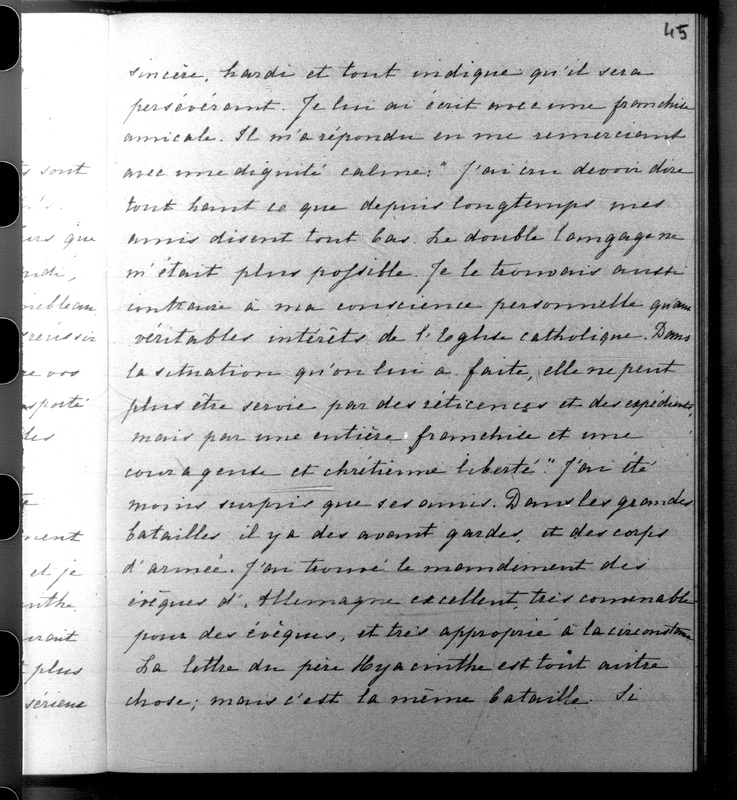 45
sincère, hardi et tout indique qu'il sera
persévérant. Je lui ai écrit avec une franchise
amicale. Il m'a répondu en me remerciant
avec une dignité calme: " J'ai cru devoir dire
tout haut ce que depuis longtemps mes
amis disent tout bas. Le double langage ne
m'était plus possible. Je le trouvais aussi
contraire à ma conscience personnelle qu'aux
véritables intérêts de l'Eglise catholique. Dans
la situation qu'on lui a faite, elle ne peut
plus être servie par des réticences et des expédients,
mais par une entière franchise et une
courageuse et chrétienne liberté." J'ai été
moins surpris que ses amis. Dans les grandes
batailles il y a des avant gardes, et des corps
d'armée. J'ai trouvé le mandement des
évêques d'Allemagne excellent, très convenable
pour des évêques, et très approprié à la circonstance.
La lettre du père Hyacinthe est tout autre
chose; mais c'est la même bataille. Si
sont
que
réussir
vos
des
et je
plus